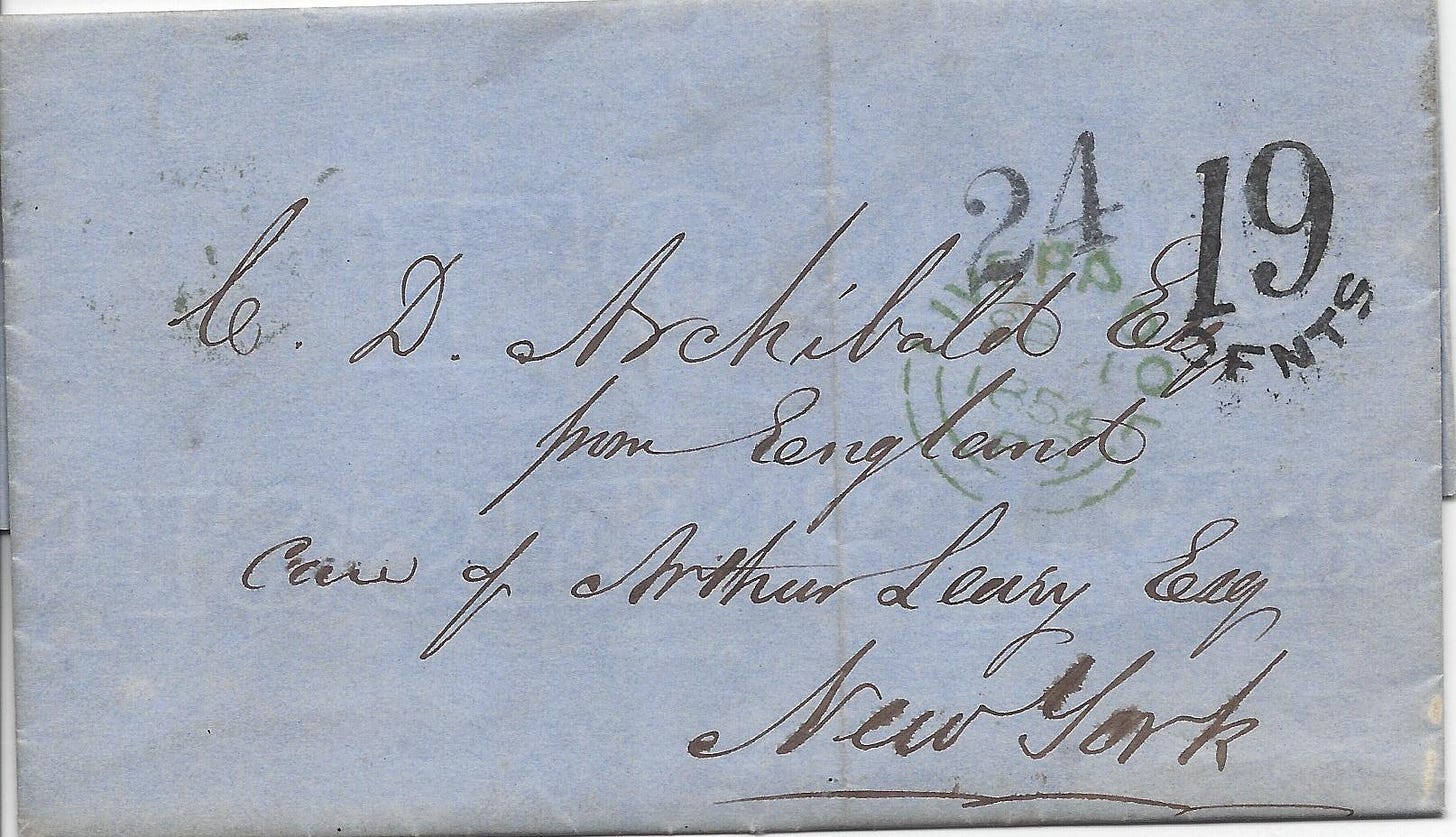 24 19
CENTS
C. D. Archibald Esq
10
1854
from England
care of Arthur Leary Esq
New York